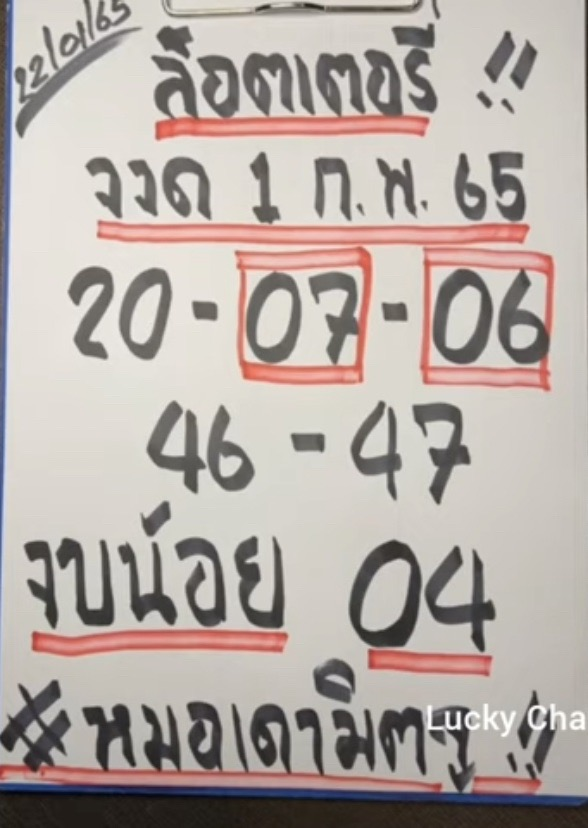 22/01/65
ล็อตเตอรี่ !!
งวด 1 ก.พ. 65
20 - 07 - 06
46 - 47
งบน้อย 04
#หมอเดามิตซู !!
Lucky Cha